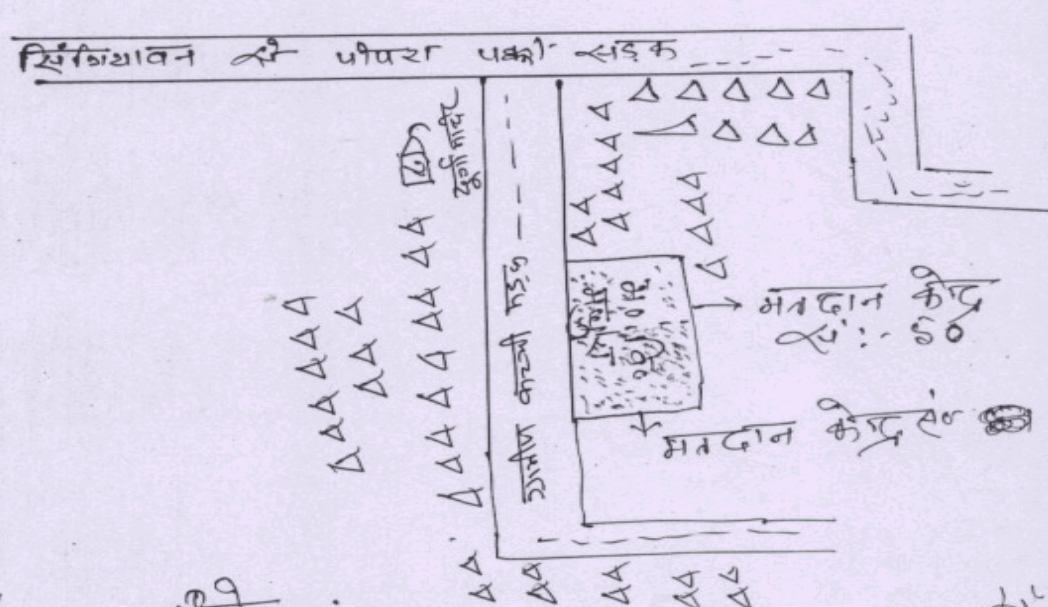 सिंगियावन से पीपरा पक्की सड़क
दुर्गा मंदिर
ग्रामीण कच्ची सड़क
मतदान केन्द्र
सं:- ६०
मतदान केन्द्र सं०